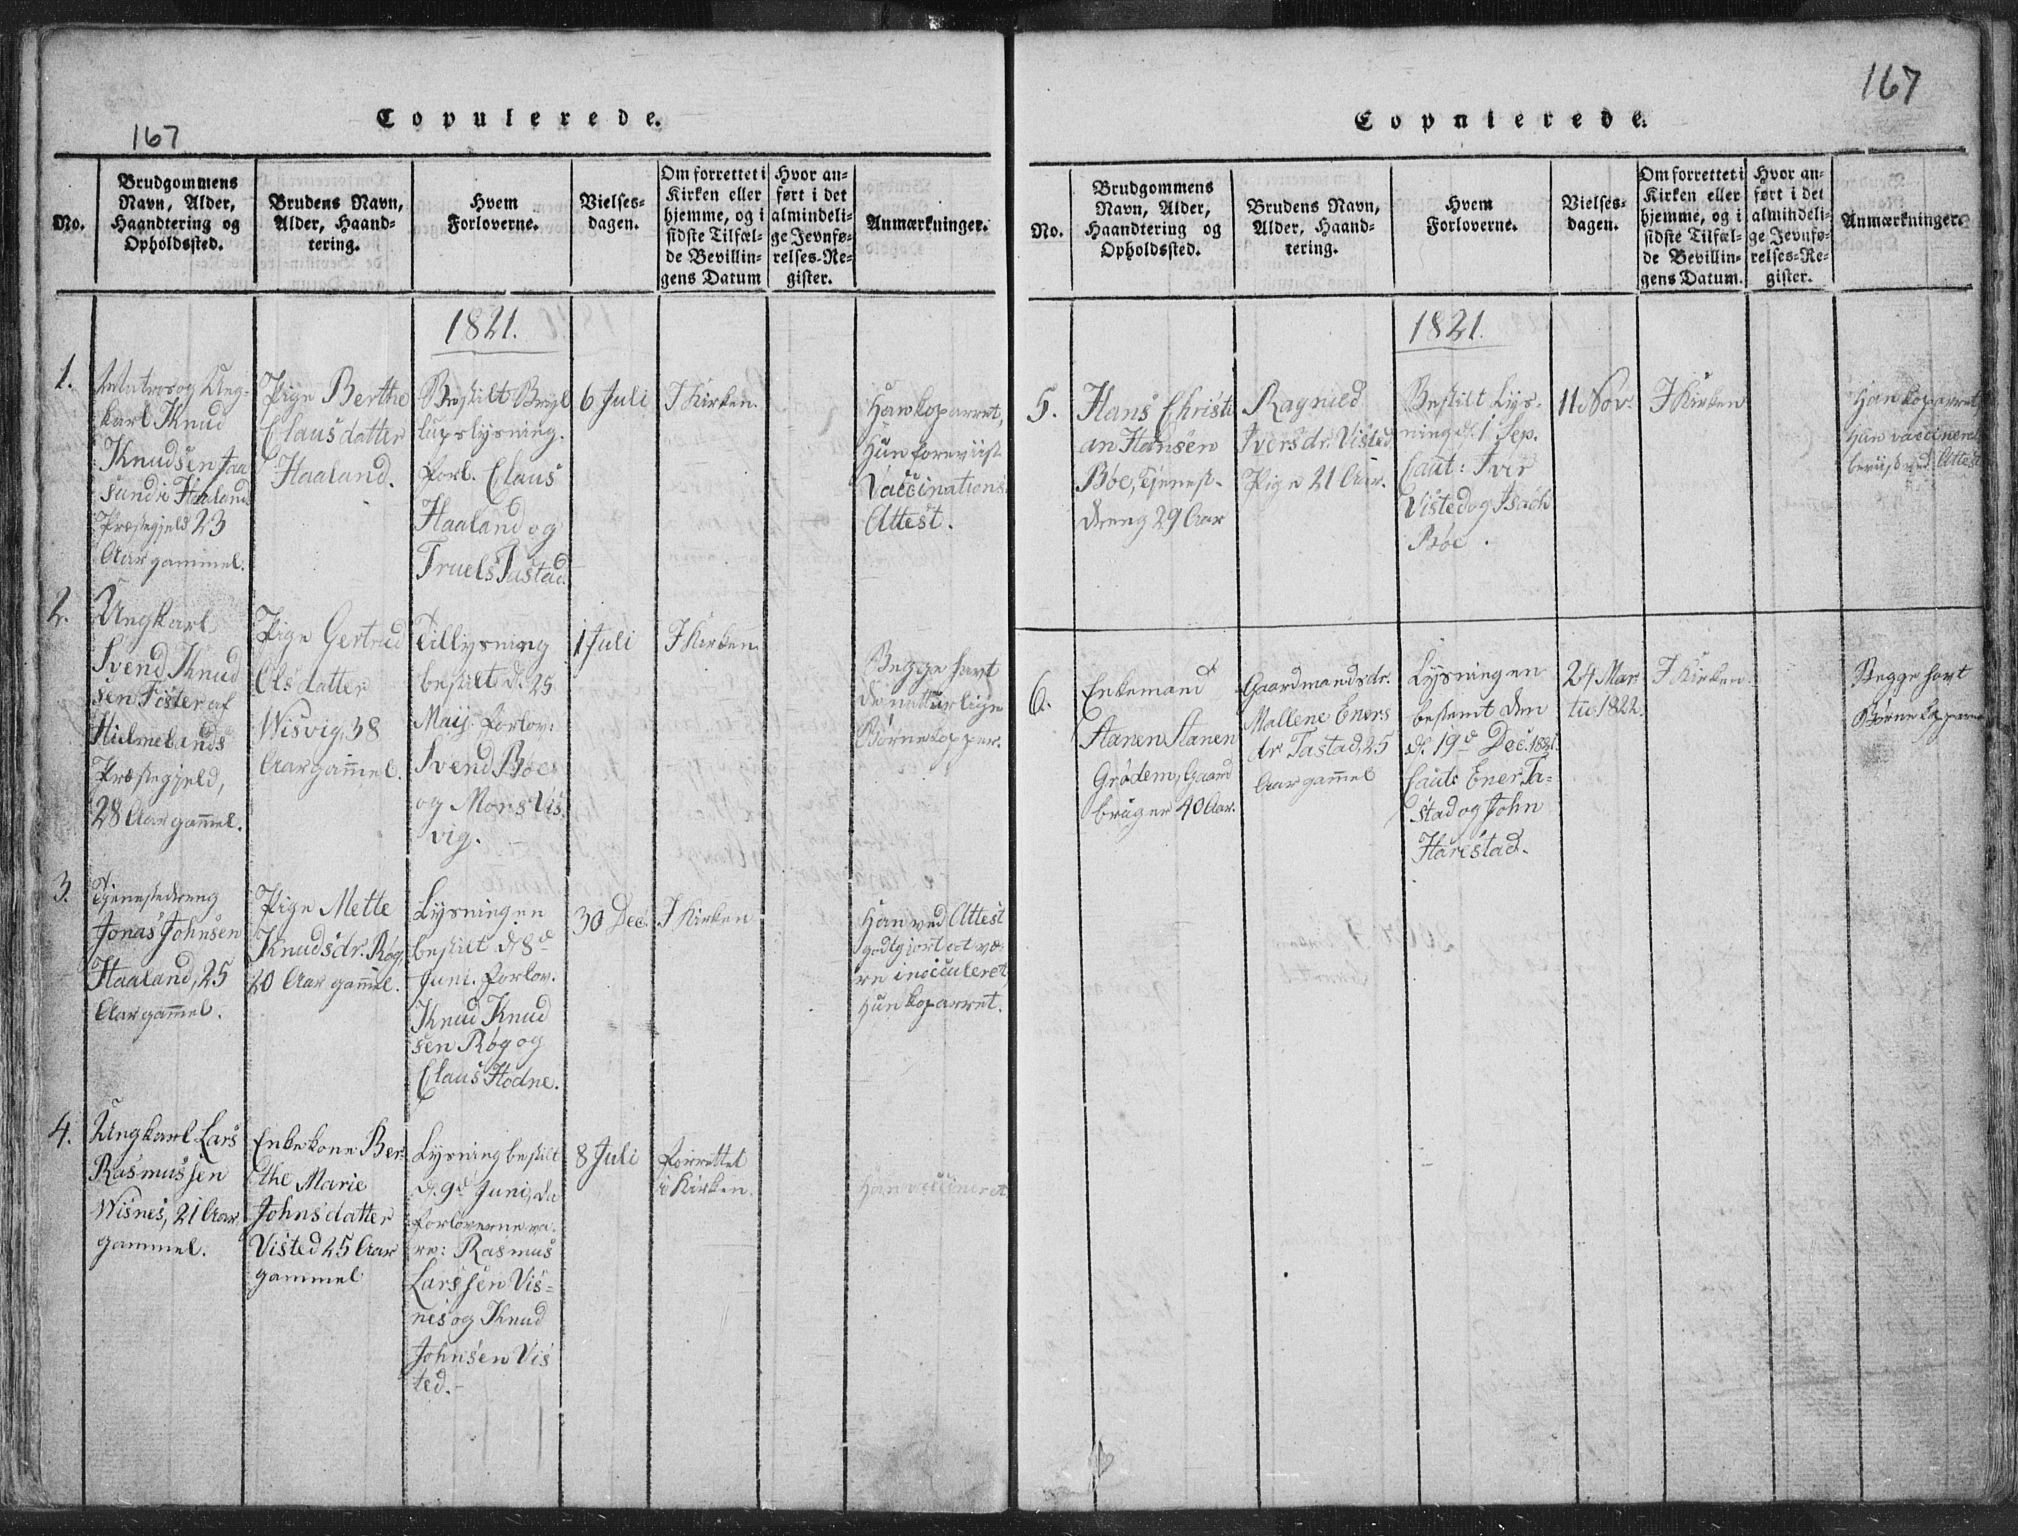 167
Copulerede.
No.
Brudgommens
Navn, Alder,
Haandtering og
Opholdssted.
Brudens Navn,
Alder, Haand-
tering.
Hvem
Forloverne.
Vielses-
dagen.
Om forrettet i
Kirken eller
hjemme, og i
sidste Tilfæl-
de Bevillin-
gens Datum
Hvor an-
ført i det
almindeli-
ge Jevnfø-
relses-Re-
gister.
Anmærkninger.
1821.
1.
Matros og Ung-
karl Knud
Knudsen
sund i Haalands
Præstegjeld 23
Aar gammel.
Pige Berthe
Clausdatter
Haaland.
Bestilt
lupslysning.
Forl. Claus
Haaland og
Truels Tastad.
6 Juli
I Kirken.
Han koparret,
Hun foreviist
Vaccinations
Attest.
2.
Ungkarl
Svend Knud
sen Fister af
Hielmelands
Præstegjeld,
28 Aar gam̅el.
Pige Gertrud
Olsdatter
Wisvig, 38
Aar gam̅el.
Tillysning
bestilt d. 25
Maij. Forlov:
Svend Bøe
og Mons Vis
vig.
1 Juli
I Kirken.
Begge havt
de naturlige
Børnekopper.
3.
Tjenestedreng
Jonas Johnsen
Haaland, 25
Aar gam̅el.
Pige Mette
Knudsdr. Røg,
20 Aar gam̅el.
Lysningen
bestilt d. 8d
Juni. Forlov.
Knud Knud
sen Røg og
Claus Hodne.
30 Dec.
I Kirken
Han ved Attest
godtgjort at væ-
re inocculeret,
Hun koparret.
4.
Ungkarl Lars
Rasmussen
Wisnes, 21 Aar
gammel.
Enkekone Ber-
the Marie
Johnsdatter
Visted 25 Aar
gammel
Lysning bestilt
d. 9d Juni, da
Forloverne va-
re: Rasmus
Larssen Vis-
nes og Knud
Johnsen Vis
ted.
8 Juli
Forrettet
i Kirken.
Han vaccineret
167
Copulerede.
No.
Brudgommens
Navn, Alder,
Haandtering og
Opholdssted.
Brudens Navn,
Alder, Haand-
tering.
Hvem
Forloverne.
Vielses-
dagen.
Om forrettet i
Kirken eller
hjemme, og i
sidste Tilfæl-
de Bevillin-
gens Datum.
Hvor an-
ført i det
almindeli-
ge Jevnfø-
relses-Re-
gister.
Anmærkninger.
1821.
5.
Hans Christi
an Hansen
Bøe, Tjenest-
dreng 29 Aar
Ragnied
Iversdr. Visted
Pige 21 Aar.
Bestilt Lys-
ning d. 1 Sep.
Caut: Iver
Visted og Isach
Bøe.
11 Nov.
I Kirken
Han koparret
Hun vaccineret
beviist ved Attest
6.
Enkemand
Stanen Stanen
Grødem, Gaard
bruger 40 Aar.
Gaardmandsdr.
Mallene Eners
dr Tastad, 25
Aar gam̅el
Lysningen
bestemt den
d. 19d Dec. 1821.
Caut: Ener Ta-
stad og John
Harestad.
24 Mar
tii 1822.
I Kirken
Begge havt
Børnekopper